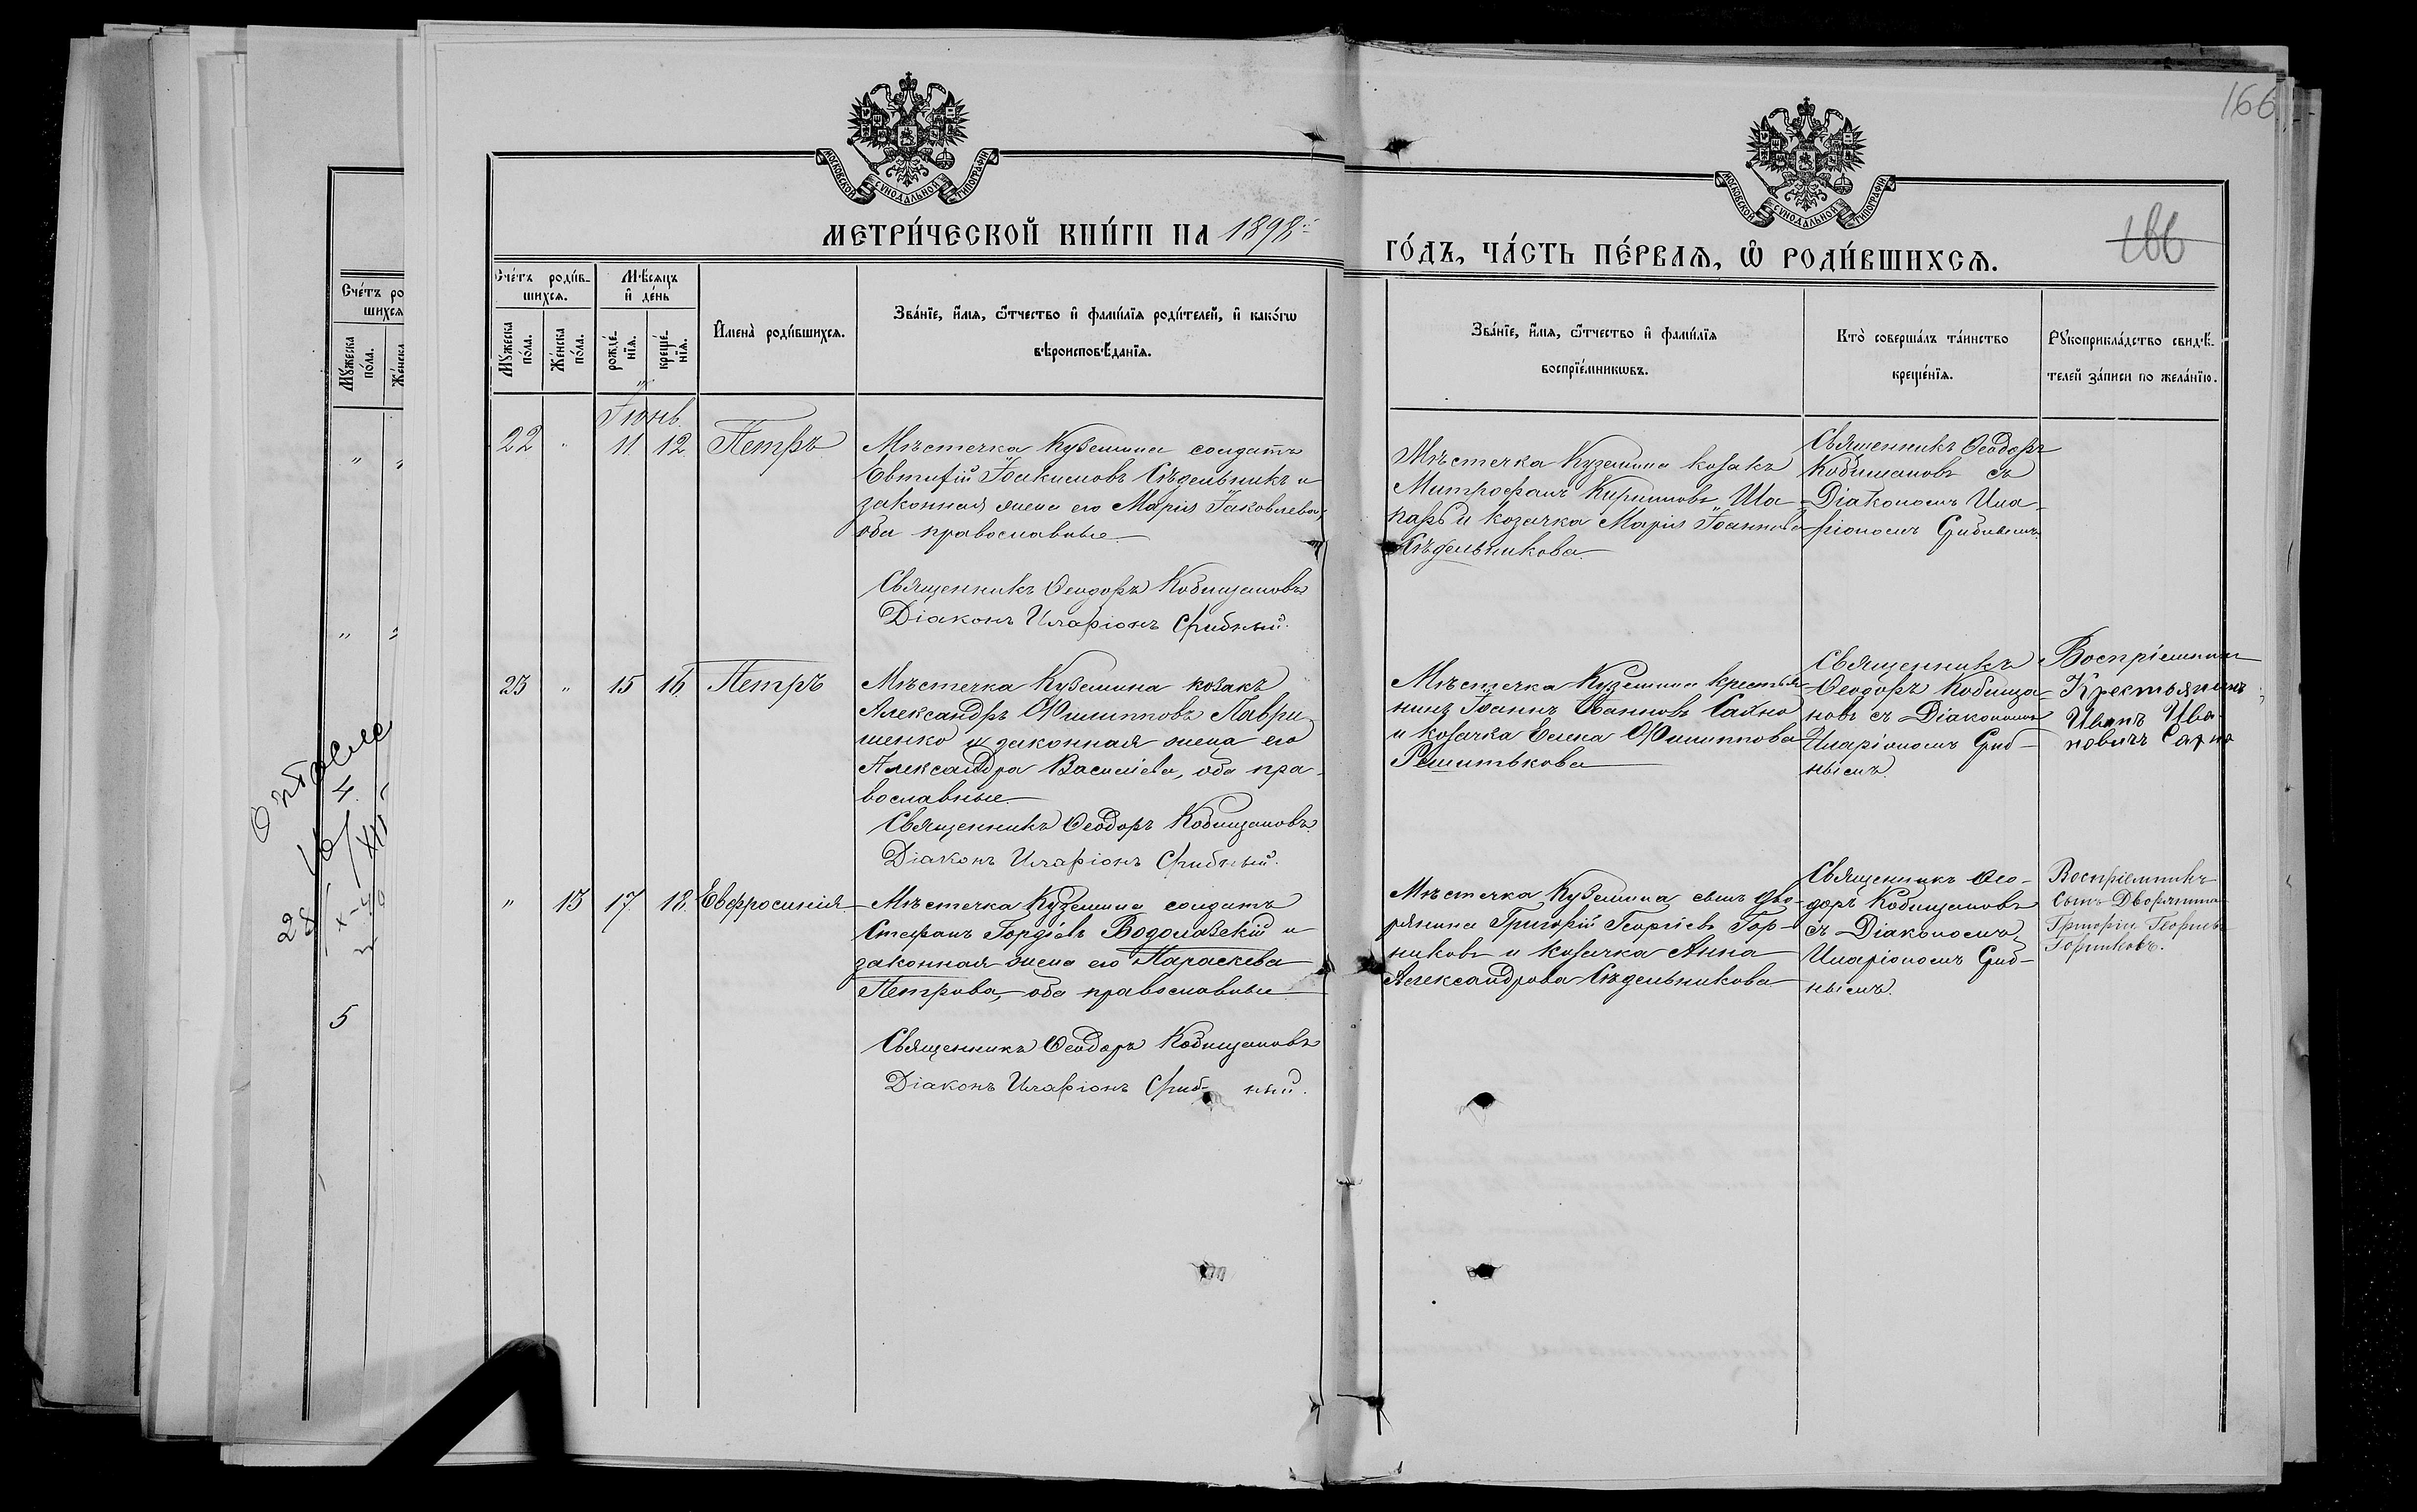 166
МОСКОВСКОЙ СУНОДАЛЬНОЙ ТИПОГРАФІИ
МОСКОВСКОЙ СУНОДАЛЬНОЙ ТИПОГРАФІИ
МЕТРИ́ЧЕСКОЙ КНИ́ГИ НА 1898
ГО́ДЪ, ЧА́СТЬ ПЕ́РВАѦ, Ѽ РОДИ́ВШИХСѦ.
166
Счётъ роди́в-
шихсѧ.
Мѣ́сѧцъ
и҆ де́нь
Мꙋ́жеска по́ла.
Же́нска по́ла.
рожде́-
нїѧ.
креще́-
нїѧ.
И҆мена̀ роди́вшихсѧ.
Зва́нїе, и҆́мѧ, ѻ҆́тчество и҆ фами́лїѧ роди́телей, и҆ како́гѡ
вѣроисповѣ́данїѧ.
Зва́нїе, и҆́мѧ, ѻ҆́тчество и҆ фами́лїѧ
воспрїе́мникѡвъ.
Кто̀ соверша́лъ та́инство
креще́нїѧ.
Рꙋкоприкла́дство свидѣ́-
телей за́писи по жела́нїю.
Счётъ ро
шихсѧ
Мꙋ́жеска по́ла.
Же́нска
Іюнь
22 " 11. 12. Петръ
Мѣстечка Куземина солдатъ
Евтифій Іоакимовъ Сѣдельникъ и
законная жена его Марія Іаковлева,
оба православные
Священникъ Ѳеодоръ Кобищановъ
Діаконъ Иларіонъ Грибный.
Мѣстечка Куземина козакъ
Митрофанъ Кирилловъ Ша-
паръ и козачка Марія Іоаннова
Сѣдельникова
Священникъ Ѳеодоръ
Кобищановъ съ
Діакономъ Ила-
ріономъ Грибнымъ
23 " 15 16 Петръ
Мѣстечка Куземина козакъ
Александръ Филипповъ Лаври-
шенко и законная жена его
Александра Василіева, оба пра-
вославные
Священникъ Ѳеодоръ Кобищановъ
Діаконъ Иларіонъ Грибный.
Мѣстечка Куземина крестья-
нинъ Іоаннъ Іоанновъ
и козачка Елена Филиппова
Решитькова
Священникъ
Ѳеодоръ Кобища-
новъ съ Діакономъ
Иларіономъ Гриб-
нымъ.
Воспріемникъ
Крестьянинъ
Иванъ Ива-
новичъ
" 15 17 18. Евфросинія
Мѣстечка Куземина солдатъ
Стефанъ Гордіевъ Водолазскій и
законная жена его Параскева
Петрова, оба православные
Священникъ Ѳеодоръ Кобищановъ
Діаконъ Иларіонъ Гриб- ный.
Мѣстечка Куземина сынъ дво-
рянина Григорій Георгіевъ Гор-
никовъ и козачка Анна
Александрова Сѣдельникова
Священникъ Ѳео-
доръ Кобищановъ
съ Діакономъ
Иларіономъ Гриб-
нымъ.
Воспріемникъ
Сынъ Дворянина
Григорій Георгіевъ
Горниковъ.
5